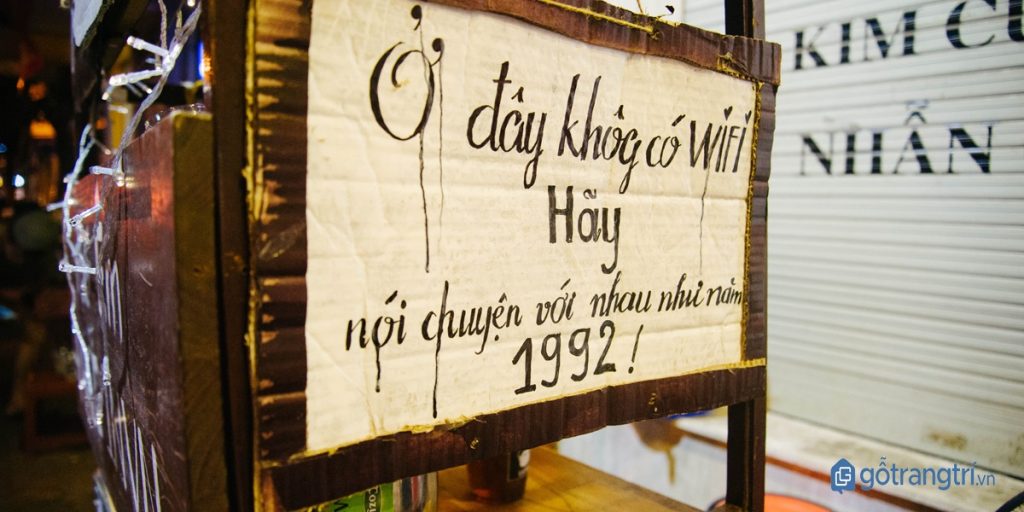 Ở đây khôg có WiFi
Hãy
nói chuyện với nhau như năm
1992!
KIM CƯ
NHẪN
gỗtrangtrí.vn